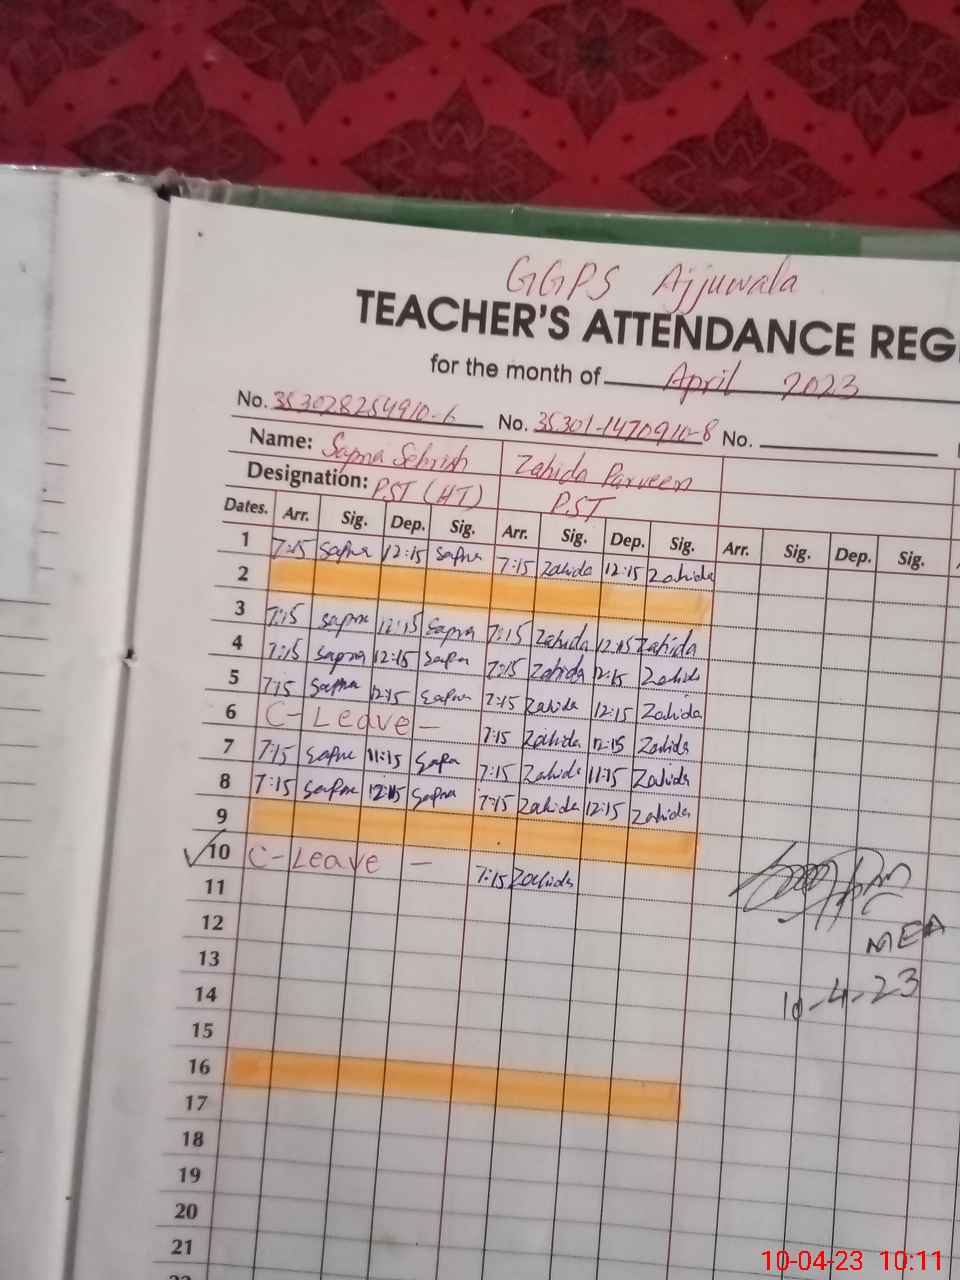 GGPS Ajjuwala
TEACHER'S ATTENDANCE REG
for the month of April 2023
No. 353028254910-6 No. 35301-1470910-8 No.
Name: Sapna Sehrish Zahida Parveen
Designation: PST (HT) PST
Dates. Arr. Sig. Dep. Sig. Arr. Sig. Dep. Sig. Arr. Sig. Dep. Sig.
1 7:15 Sapna 12:15 Sapna 7:15 Zahida 12:15 Zahida
2
3 7:15 Sapna 12:15 Sapna 7:15 Zahida 12:15 Zahida
4 7:15 Sapna 12:15 Sapna 7:15 Zahida 12:15 Zahida
5 7:15 Sapna 12:15 Sapna 7:15 Zahida 12:15 Zahida
6 C-Leave- 7:15 Zahida 12:15 Zahida
7 7:15 Sapna 11:15 Sapna 7:15 Zahida 11:15 Zahida
8 7:15 Sapna 12:15 Sapna 7:15 Zahida 12:15 Zahida
9
10 C-Leave - 7:15 Zahida
11
12
MEA
13
10-4-23
14
15
16
17
18
19
20
21
10-04-23 10:11